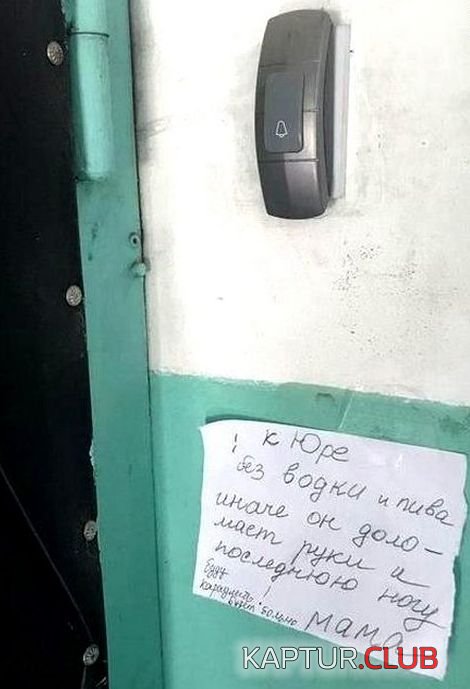 ! к Юре
без водки и пива
иначе он доло-
мает руки и
последнюю ногу
!
буду
караулить
будет больно
мама
KAPTUR.CLUB